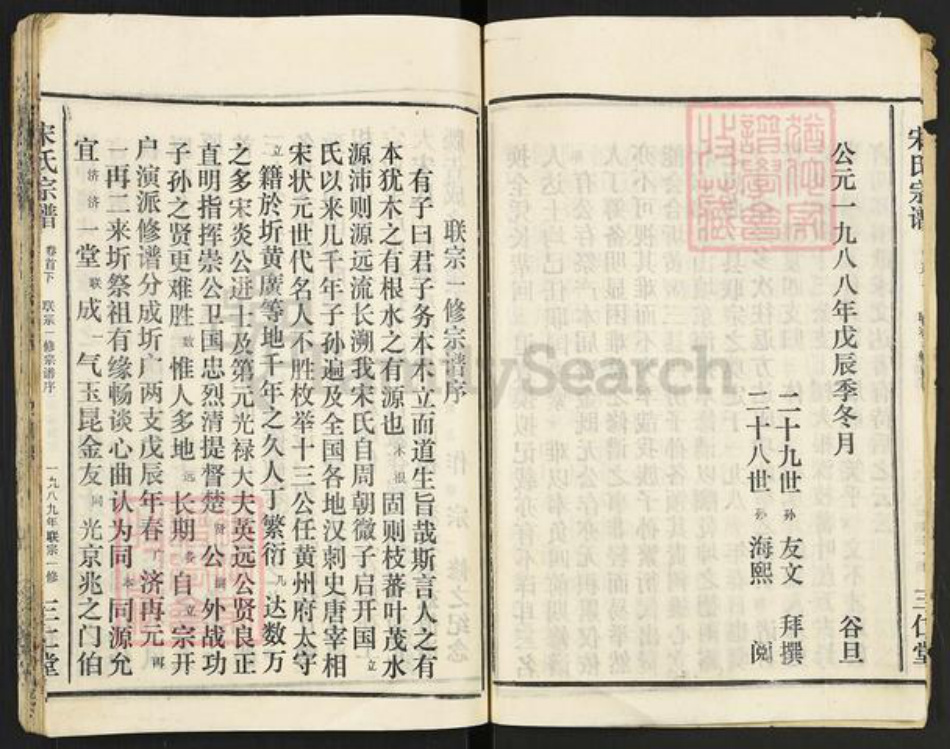 宋氏宗谱
三仁堂
公元一九八八年戊辰季冬月 谷旦
二十九世孙 友文 拜撰
二十八世孙 海熙 阅
联宗一修宗谱序
有子曰君子务本本立而道生旨哉斯言人之有
本犹木之有根水之有源也木根固则枝蕃叶茂水
源沛则源远流长溯我宋氏自周朝微子启开国立
氏以来几千年子孙遍及全国各地汉刺史唐宰相
宋状元世代名人不胜枚举十三公任黄州府太守
立籍於圻黄廣等地千年之久人丁繁衍凡达数万
之多宋炎公进士及第元光禄大夫英远公贤良正
直明指挥崇公卫国忠烈清提督楚贤公嗣外战功
子孙之贤更难胜数惟人多地远长期各自立宗开
户演派修谱分成圻广两支戊辰年春丁济再元再
一再二来圻祭祖有缘畅谈心曲认为同本同源允
宜济济一堂联成一气玉昆金友同光京兆之门伯
宋氏宗谱 卷首下 联宗一修宗谱序 一九八九年联宗一修 三仁堂
MySearch